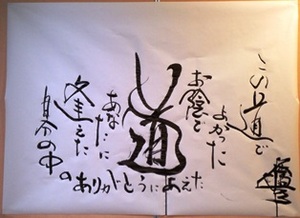 この道で
よかった
お陰で
道
あなたに
逢えた
自分の中の
ありがとうにあえた